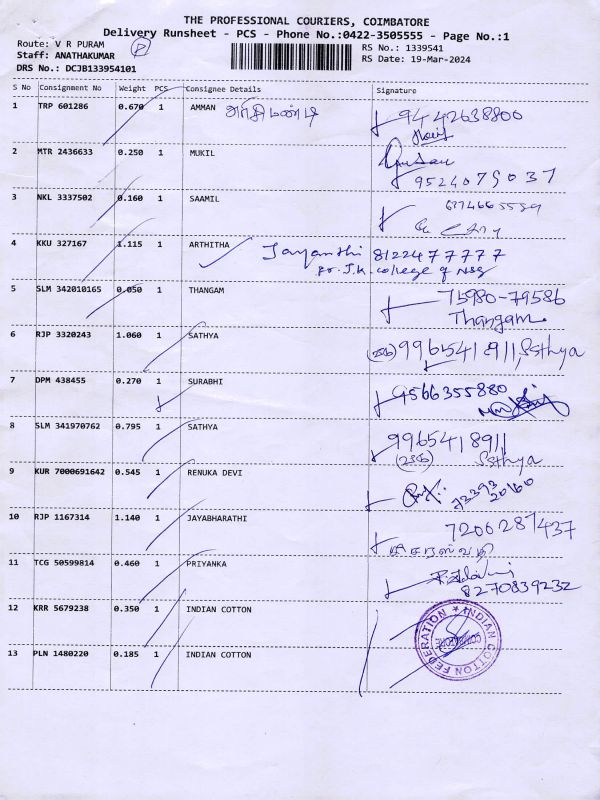 THE PROFESSIONAL COURIERS, COIMBATORE
Delivery Runsheet - PCS - Phone No.:0422-3505555 - Page No.:1
Route: V R PURAM
P
RS No.: 1339541
Staff: ANATHAKUMAR
RS Date: 19-Mar-2024
DRS No.: DCJB133954101
S No Consignment No Weight PCS Consignee Details Signature
1 TRP 601286 0.670 1 AMMAN அரிசிமண்டி 9442638800
2 MTR 2436633 0.250 1 MUKIL
9524079037
3 NKL 3337502 0.160 1 SAAMIL
4 KKU 327167 1.115 1 ARTHITHA Jayanthi 8122477777
Dr. J.K. college of Nsg
5 SLM 342010165 0.050 1 THANGAM 75980-79586
Thangam.
6 RJP 3320243 1.060 1 SATHYA 9965418911 Ssthya
7 DPM 438455 0.270 1 SURABHI 9566355880
8 SLM 341970762 0.795 1 SATHYA 9965418911
Ssthya
9 KUR 7000691642 0.545 1 RENUKA DEVI 73393
20160
10 RJP 1167314 1.140 1 JAYABHARATHI 7206287437
11 TCG 50599814 0.460 1 PRIYANKA
8270839232
12 KRR 5679238 0.350 1 INDIAN COTTON
INDIAN COTTON FEDERATION
COIMBATORE
13 PLN 1480220 0.185 1 INDIAN COTTON